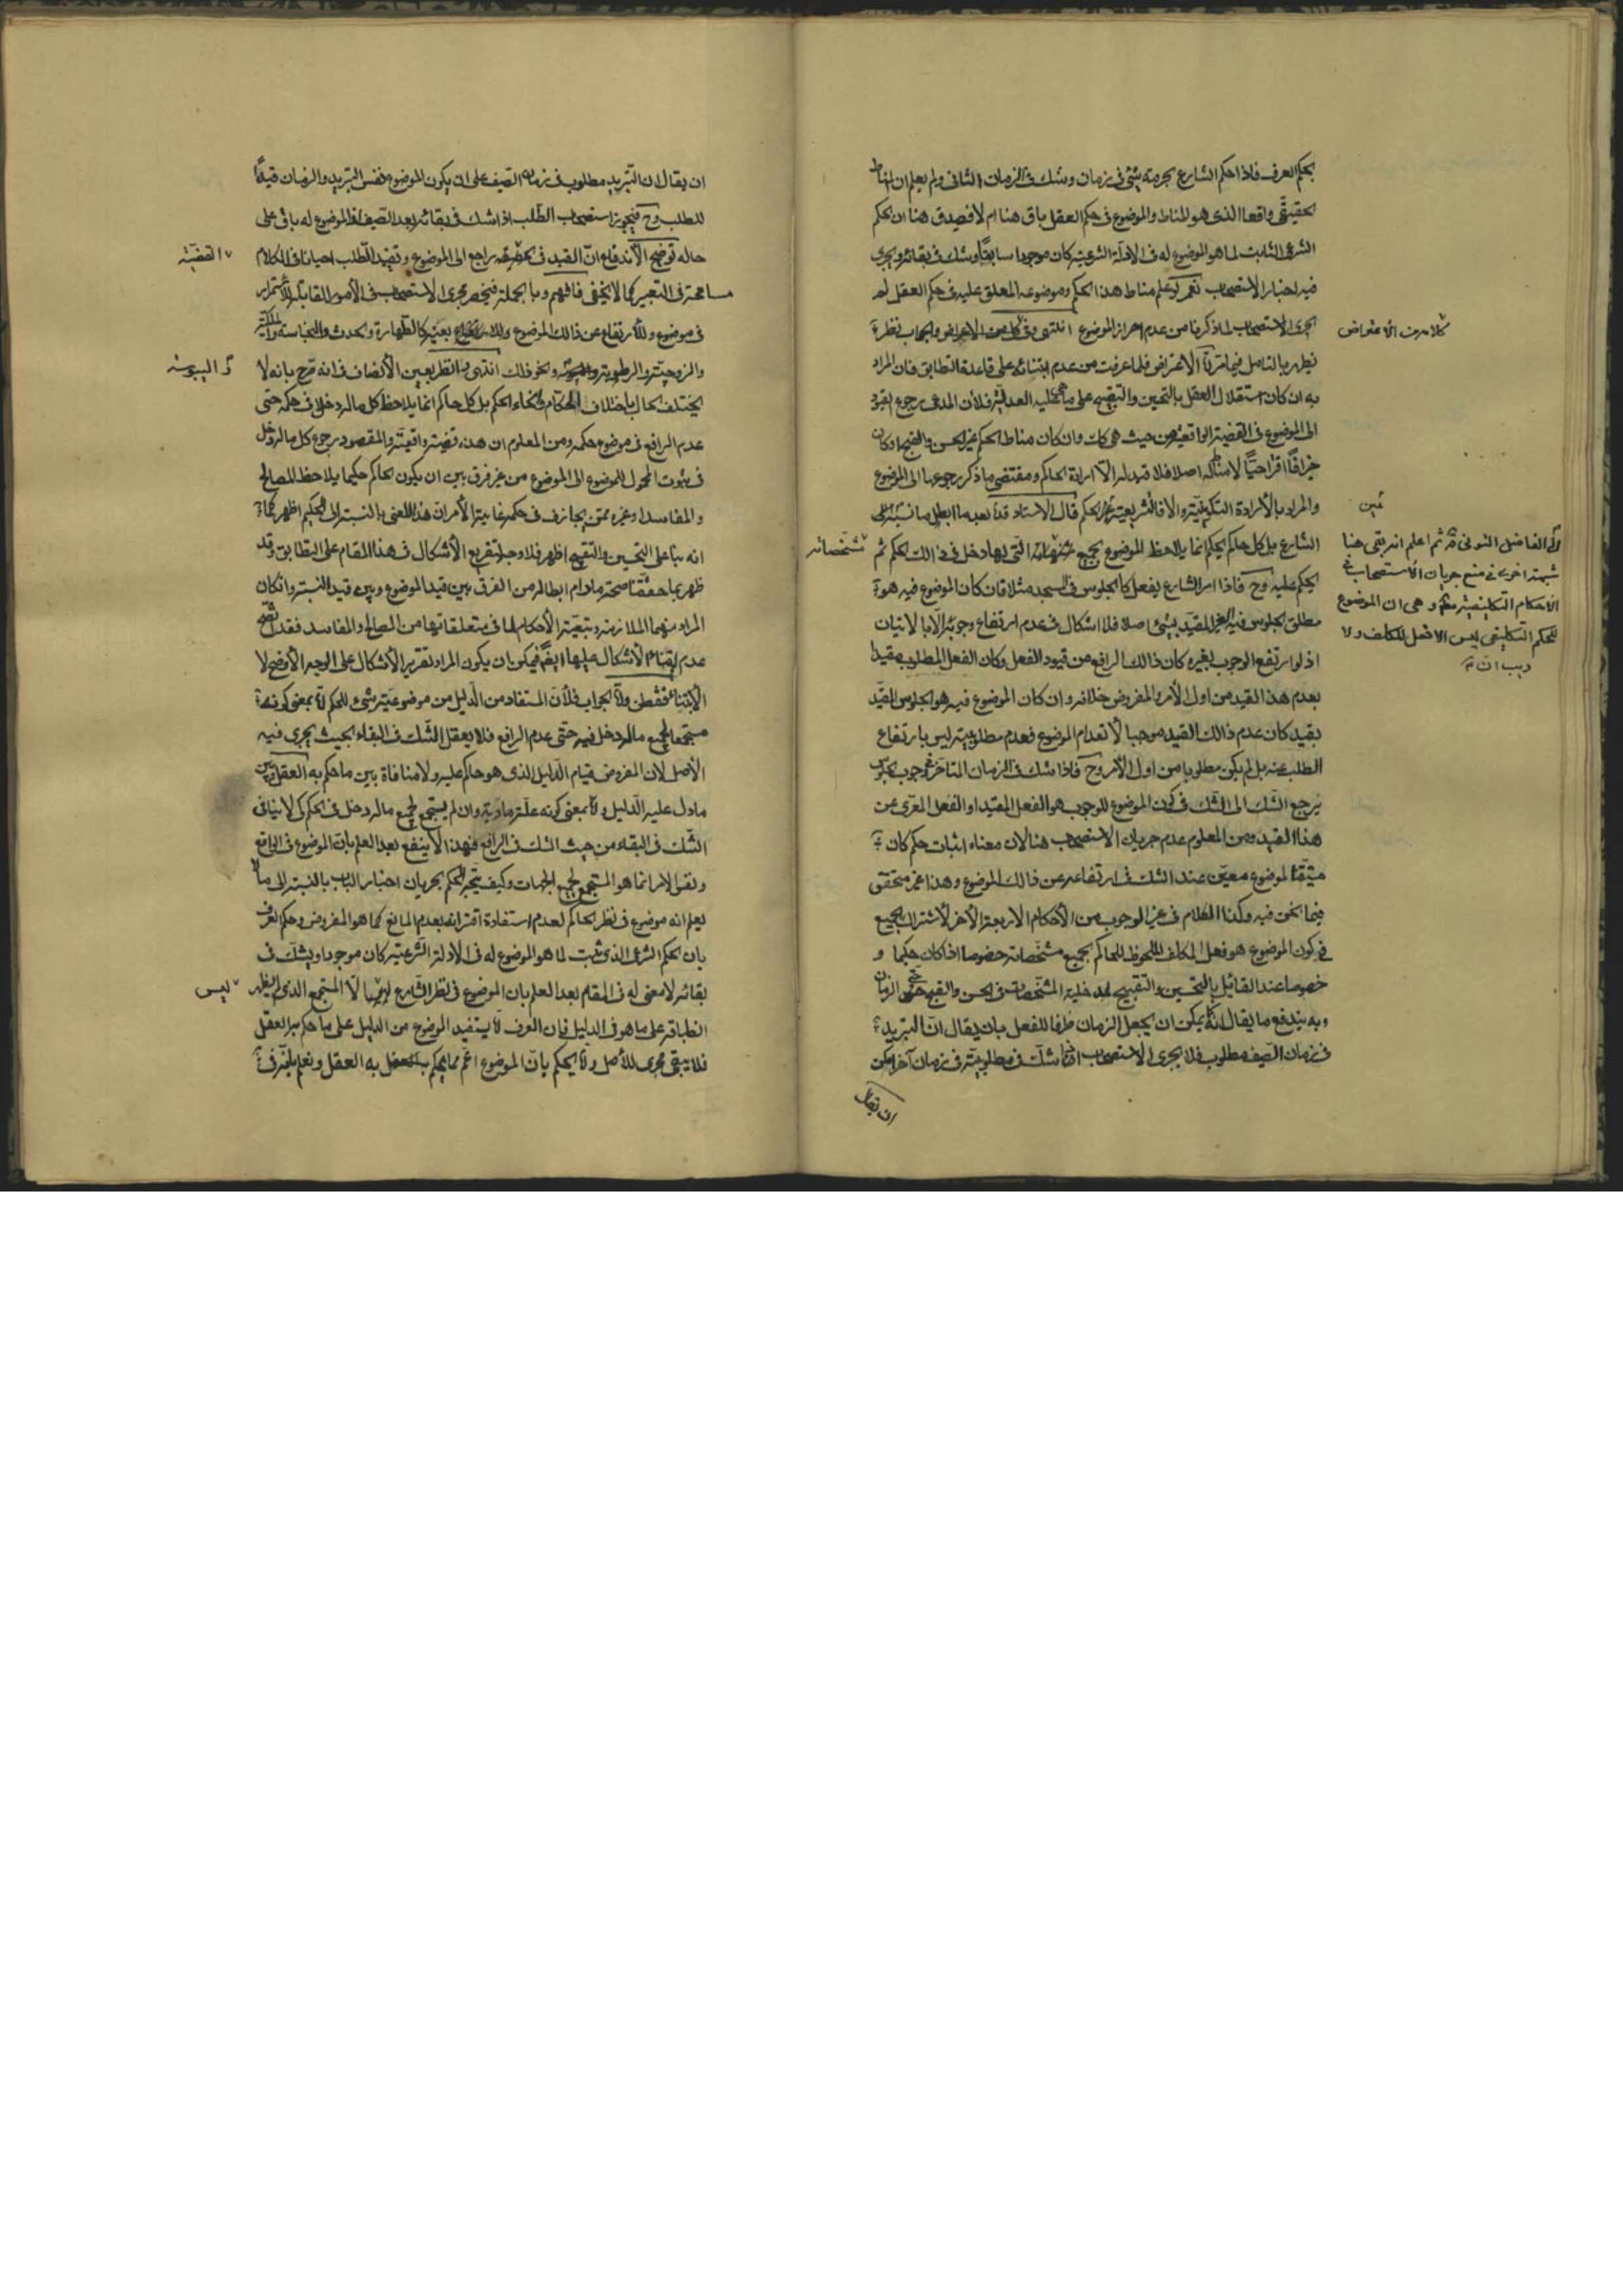 بحكم العرف فاذا حكم الشارع بحرمة شئ فى زمان وشك فى الزمان الثانى ولم يعلم ان المناط
الحقيقى واقعا الذى هو المناط والموضوع فى حكم العقل باق هنا ام لا فيصدق هنا ان الحكم
الشرعى الثابت لما هو الموضوع له فى الادلة الشرعية كان موجودا سابقا وشك فى بقائه ويجرى
فيه اخبار الاستصحاب نعم لو علم مناط هذا الحكم وموضوعه المعلق عليه فى حكم العقل لم
يجرى الاستصحاب لما ذكرنا من عدم احراز الموضوع انتهى وفى كل من الاعتراض والجواب نظر
كلا من الاعتراض
يظهر بالتامل فيما مر اما الاعتراض فلما عرفت من عدم ابتنائه على قاعدة التطابق فان المراد
به ان كان استقلال العقل بالتحسين والتقبيح على ما عليه العدلية فلان المدعى رجوع القيود
الى الموضوع فى القضية الواقعية من حيث هى كانت وان كان مناط الحكم غير الحسن والقبح او كان
جزافا اقتراحيا لا مناط له اصلا فلا قيد له الا ارادة الحاكم ومقتضى ما ذكر رجوعها الى الموضوع
والمراد بالارادة التكوينية والا فالتشريعية عين الحكم قال الاستاد قده بعد ما ابطل ما نسبه الى
عين
الفاضل التونى قده ثم اعلم انه بقى هنا
شبهة اخرى فى منع جريان الاستصحاب فى
الاحكام التكليفية وهى ان الموضوع
للحكم التكليفى ليس الا فعل المكلف ولا
ريب ان
الشارع بل كل حاكم يحكم انما يلاحظ الموضوع بجميع مشخصاته التى لها دخل فى ذالك الحكم ثم
مشخصاته
يحكم عليه وح فاذا امر الشارع بفعل كالجلوس فى المسجد مثلا فان كان الموضوع فيه هو
مطلق الجلوس فيه الغير المقيد بشئ اصلا فلا اشكال فى عدم ارتفاع وجوبه الا بالاتيان
اذ لو ارتفع الوجوب بغيره كان ذالك الرافع من قيود الفعل وكان الفعل المطلوب مقيدا
بعدم هذا القيد من اول الامر والمفروض خلافه وان كان الموضوع فيه هو الجلوس المقيد
بقيد كان عدم ذالك القيد موجبا لانعدام الموضوع فعدم مطلوبيته ليس بارتفاع
الطلب عنه بل لم يكن مطلوبا من اول الامر وح فاذا شك فى الزمان المتاخر فى وجوب الجلوس
يرجع الشك الى الشك فى كون الموضوع للوجوب هو الفعل المقيد او الفعل المعرى عن
هذا القيد ومن المعلوم عدم جريان الاستصحاب هنا لان معناه اثبات حكم كان
متيقنا لموضوع معين عند الشك فى ارتفاعه عن ذالك الموضوع وهذا غير متحقق
فيما نحن فيه وكذا الكلام فى غير الوجوب من الاحكام الاربعة الاخر لاشتراك الجميع
فى كون الموضوع هو فعل المكلف الملحوظ للحاكم بجميع مشخصاته خصوصا اذا كان حكيما و
خصوصا عند القائل بالتحسين والتقبيح لمدخلية المشخصات فى الحسن والقبح حتى الزمان
وبه يندفع ما يقال انه يمكن ان يجعل الزمان ظرفا للفعل بان يقال ان التبريد
فى زمان الصيف مطلوب فلا يجرى الاستصحاب اذا شك فى مطلوبيته فى زمان آخر امكن
ان يقال
ان يقال ان التبريد مطلوب فى زمان الصيف على ان يكون الموضوع نفس التبريد والزمان قيدا
للطلب وح فيجوز استصحاب الطلب اذا شك فى بقائه بعد الصيف اذ الموضوع له باق على
حاله توضيح الاندفاع ان القيد فى الحقيقة راجع الى الموضوع وتقييد الطلب احيانا فى الكلام
القضية
مسامحة فى التعبير كما لا يخفى فافهم وبالجملة فينحصر مجرى الاستصحاب فى الامور القابلة للاستمرار
فى موضوع وللارتفاع عن ذالك الموضوع بعينه كالطهارة والحدث والنجاسة والملكية
والزوجية والرطوبة واليبوسة ونحو ذالك انتهى والنظر بعين الانصاف فانه صرح بانه لا
اليبوسة
يختلف الحال باختلاف الحكام وانحاء الحكم بل كل حاكم انما يلاحظ كل ما له دخل فى حكمه حتى
عدم الرافع فى موضوع حكمه ومن المعلوم ان هذه قضية واقعية والمقصود رجوع كل ما له دخل
فى ثبوت المحمول للموضوع الى الموضوع من غير فرق بين ان يكون الحاكم حكيما يلاحظ المصالح
والمفاسد او غيره ممن يجازف فى حكمه غاية الامر ان هذا المعنى بالنسبة الى الحكيم اظهر كما
انه بناء على التحسين والتقبيح اظهر فلا وجه لتفريع الاشكال فى هذا المقام على التطابق وقد
ظهر بما حققنا صحة ما رام ابطاله من الفرق بين قيد الموضوع وبين قيد النسبة وان كان
المراد منهما الملازمة وتبعية الاحكام لما فى متعلقاتها من المصالح والمفاسد فقد اتضح
عدم ابتناء الاشكال عليها ايضا فيمكن ان يكون المراد تقرير الاشكال على الوجه الاوضح لا
الابتناء فتفطن واما الجواب فلان المستفاد من الدليل من موضوعية شئ للحكم لا بمعنى كونه
مستجمعا لجميع ما له دخل فيه حتى عدم الرافع فلا يعقل الشك فى البقاء بحيث يجرى فيه
الاصل لان المفروض قيام الدليل الذى هو حاكم عليه ولا منافاة بين ما حكم به العقل وبين
ما دل عليه الدليل واما بمعنى كونه علة مادية وان لم يستجمع لجميع ما له دخل فى الحكم كى لا ينافى
الشك فى البقاء من حيث الشك فى الرافع فهذا لا ينفع بعد العلم بان الموضوع فى الواقع
ونفس الامر انما هو المستجمع لجميع الجهات وكيف يتجه الحكم بجريان اخبار الباب بالنسبة الى ما
يعلم انه موضوع فى نظر الحاكم لعدم استفادة اقترانه بعدم المانع كما هو المفروض وحكم العرف
بان الحكم الشرعى الذى ثبت لما هو الموضوع له فى الادلة الشرعية كان موجودا ويشك فى
بقائه لا معنى له فى المقام بعد العلم بان الموضوع فى نظر الشارع ليس الا المستجمع الذى لم يظهر
ليس
انطباقه على ما هو فى الدليل فان العرف لا يستفيد الموضوع من الدليل على ما حكم به العقل
فلا يبقى مجرى للاصل ولا يحكم بان الموضوع اعم مما يحكم به العقل